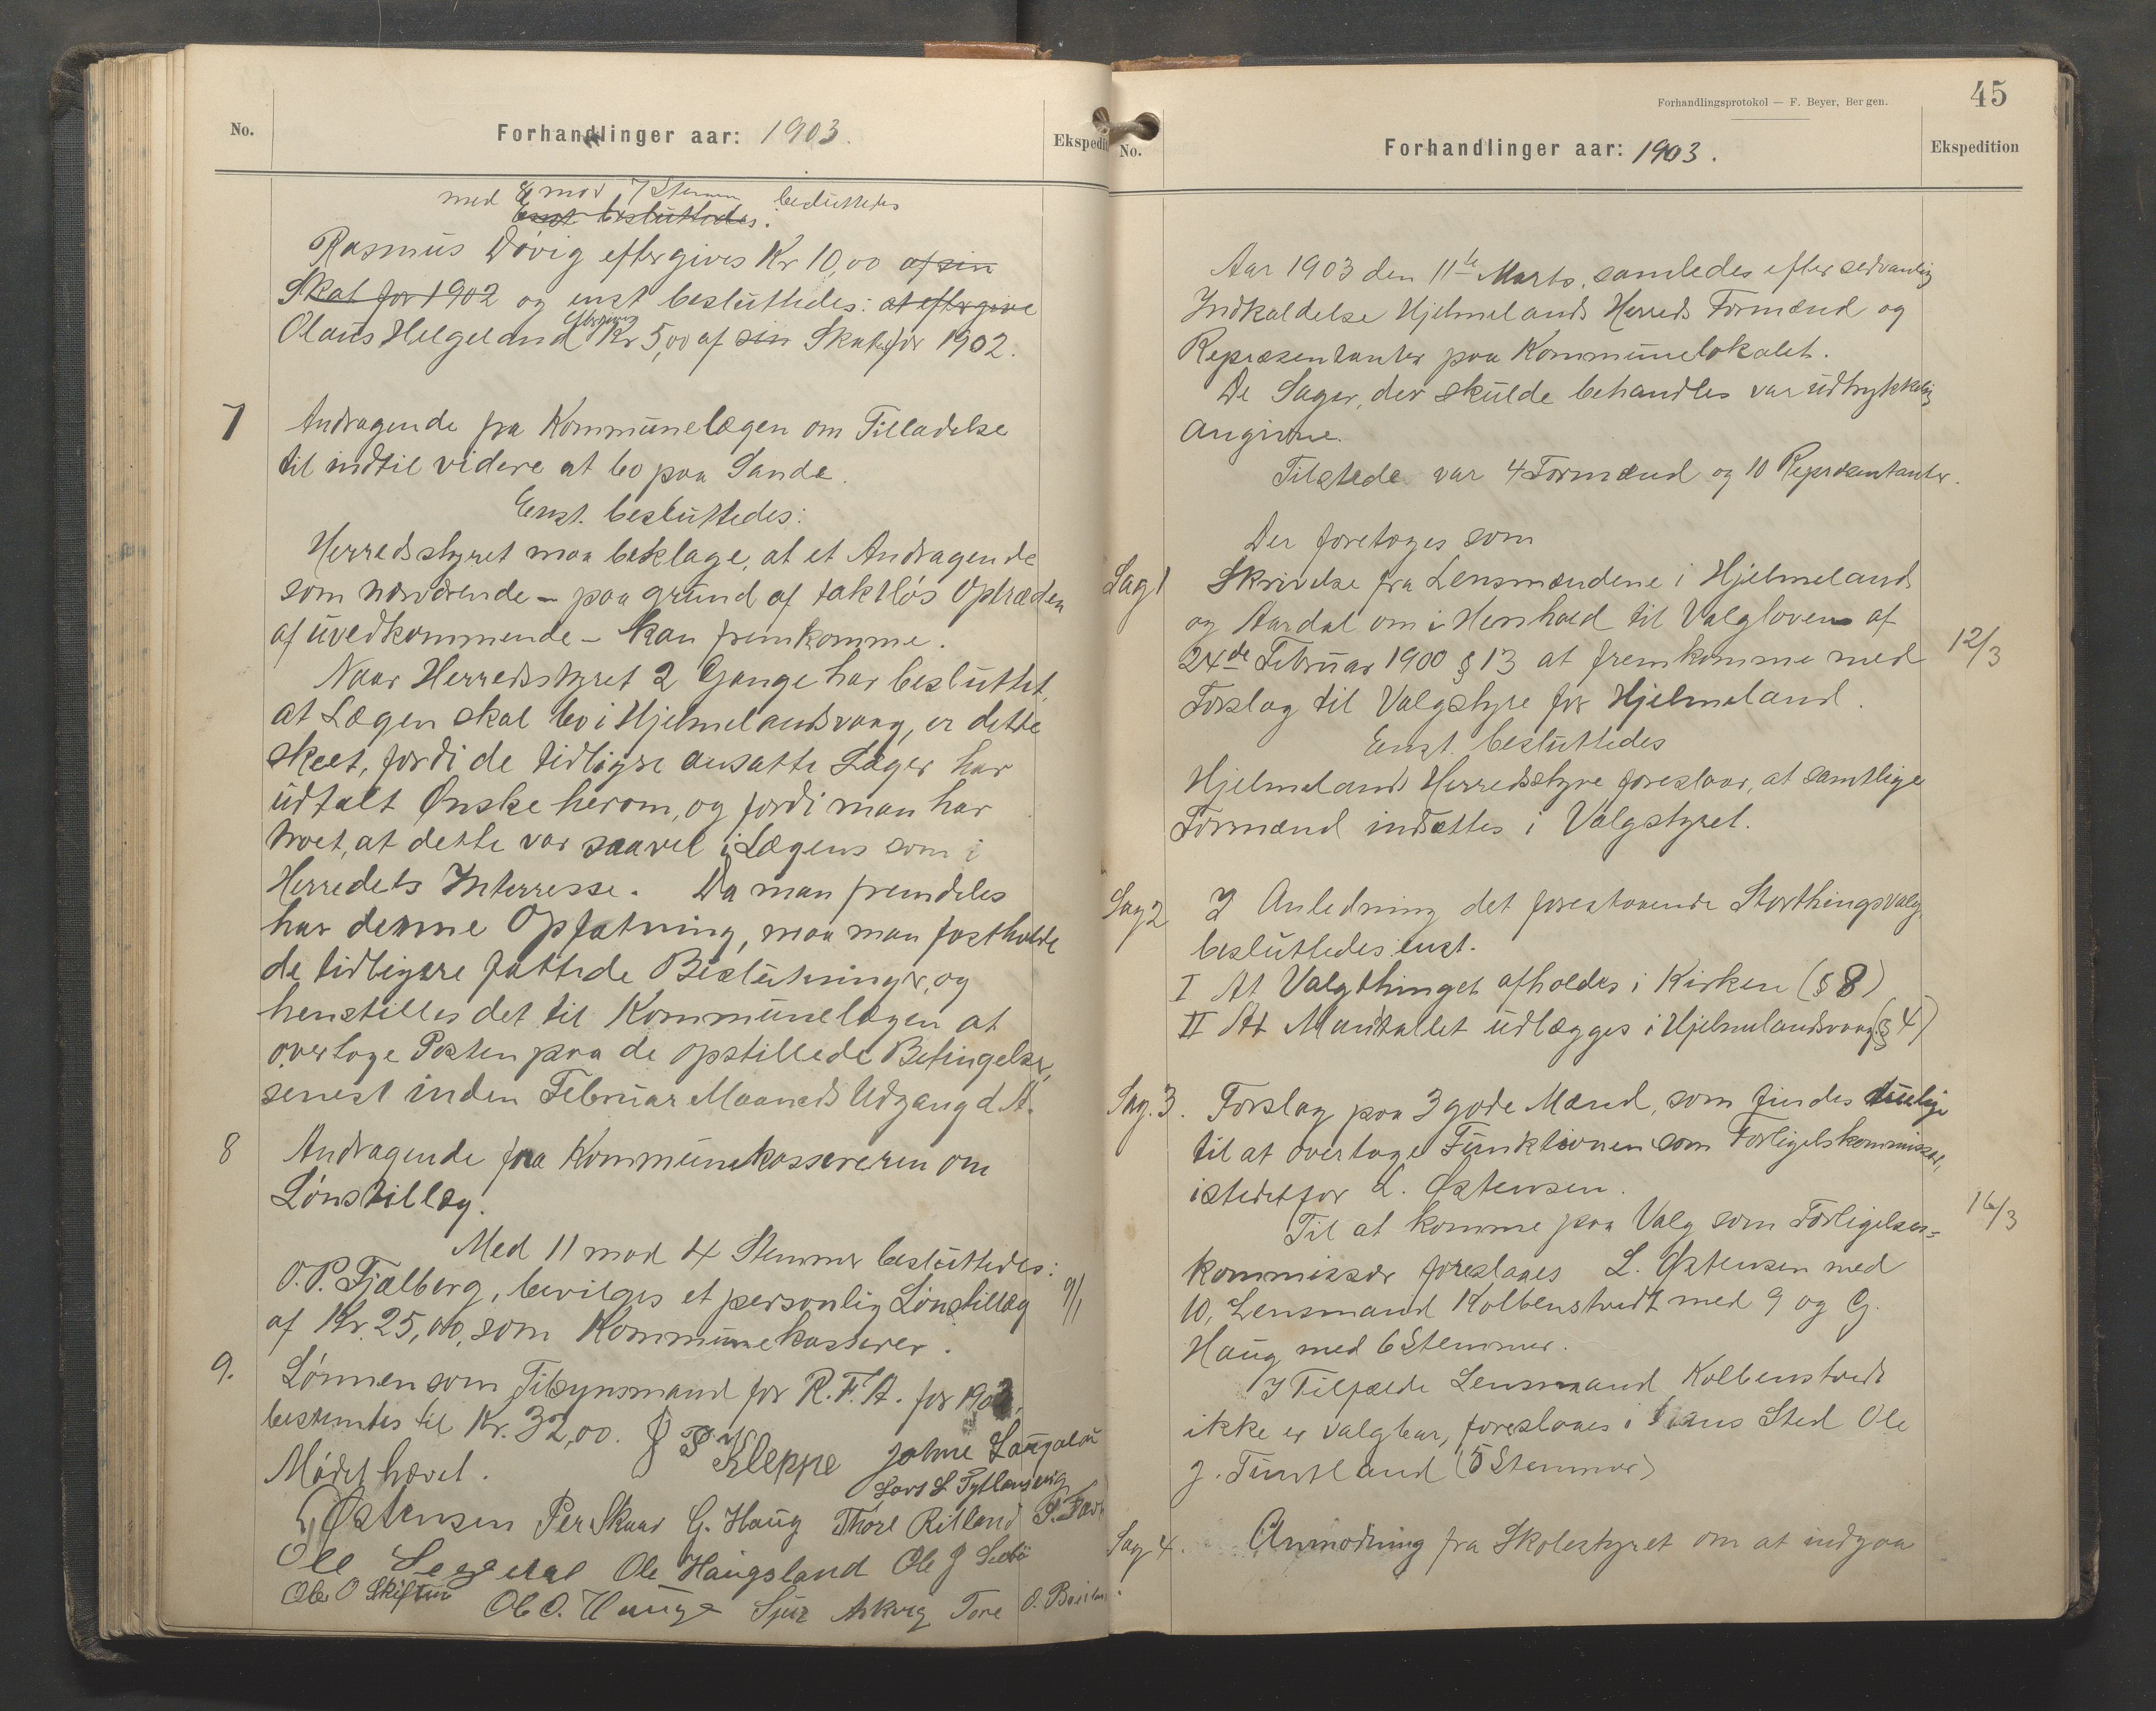 No.
Forhandlinger aar: 1903.
Ekspedit
med 8 mod 7 Stemmer besluttedes
Enst besluttedes:
Rasmus Døvig eftergives Kr 10,00 af sin
Skat for 1902 og enst besluttedes: at eftergive
Olaus Helgeland eftergives Kr 5,00 af sin Skat for 1902.
7 Andragende fra Kommunelægen om Tilladelse
til indtil videre at bo paa Sande.
Enst. besluttedes:
Herredsstyret maa beklage, at et Andragende
som nærværende – paa grund af taktløs Optræden
af uvedkommende – kan fremkomme.
Naar Herredsstyret 2 Gange har besluttet,
at Lægen skal bo i Hjelmelandsvaag, er dette
skeet, fordi de tidligre ansatte Læger har
udtalt Ønske herom, og fordi man har
troet, at dette var saavel i Lægens som i
Herredets Interresse. Da man fremdeles
har denne Opfatning, maa man fastholde
de tidligere fattede Beslutninger, og
henstilles det til Kommunelægen at
overtage Posten paa de opstillede Betingelser,
senest inden Februar Maaneds Udgang d. A.
8 Andragende fra Kommunekassereren om
Lønstillæg.
Med 11 mod 4 Stemmer besluttedes:
O. P. Fjælberg, bevilges et personlig Lønstillæg
af Kr. 25,00, som Kommunekasserer.
9/1
9. Lønnen som Tilsynsmand for R. F. A. for 1903,
bestemtes til Kr. 32,00.
Mødet hævet.
J T Kleppe Johne Laugaland
Lars L
L Østensen Per Skaar G. Haug Thore Riland
Ole Ole Haugsland Ole J
Ole O Skiftun Ole O. Hauge Sjur Askvig Tore O.
Forhandlingsprotokol — F. Beyer, Bergen.
45
No.
Forhandlinger aar: 1903.
Ekspedition
Aar 1903 den 11te Marts, samledes efter sedvanlig
Indkaldelse Hjelmelands Herreds Formænd og
Repræsentanter paa Kommunelokalet.
De Sager, der skulde behandles var udtrykkelig
angivne.
Tilstede var 4 Formænd og 10 Repræsentanter.
Der foretoges som
Sag 1 Skrivelse fra Lensmændene i Hjelmeland
og Aardal om i Henhold til Valgloven af
24de Februar 1900 § 13 at fremkomme med
12/3
Forslag til Valgstyre for Hjelmeland.
Enst. besluttedes
Hjelmelands Herredsstyre foreslaar, at samtlige
Formænd indsættes i Valgstyret.
Sag 2 I Anledning det forestaaende Storthingsvalg,
besluttedes enst.
I At Valgthinget afholdes i Kirken (§ 8)
II At Mantallet udlægges i Hjelmelandsvaag (§ 4)
Sag. 3. Forslag paa 3 gode Mænd, som findes duelige
til at overtage Funktionen som Forligelskommissær,
istedetfor L. Østensen.
Til at komme paa Valg som Forligelses-
16/3
kommissær foreslaaes L. Østensen med
10, Lensmand Kolbenstvedt med 9 og G.
Haug med 6 Stemmer.
I Tilfælde Lensmand Kolbenstvedt
ikke er valgbar, foreslaaes i hans Sted Ole
J. Tuntland (5 Stemmer)
Sag 4. Anmodning fra Skolestyret om at indgaa